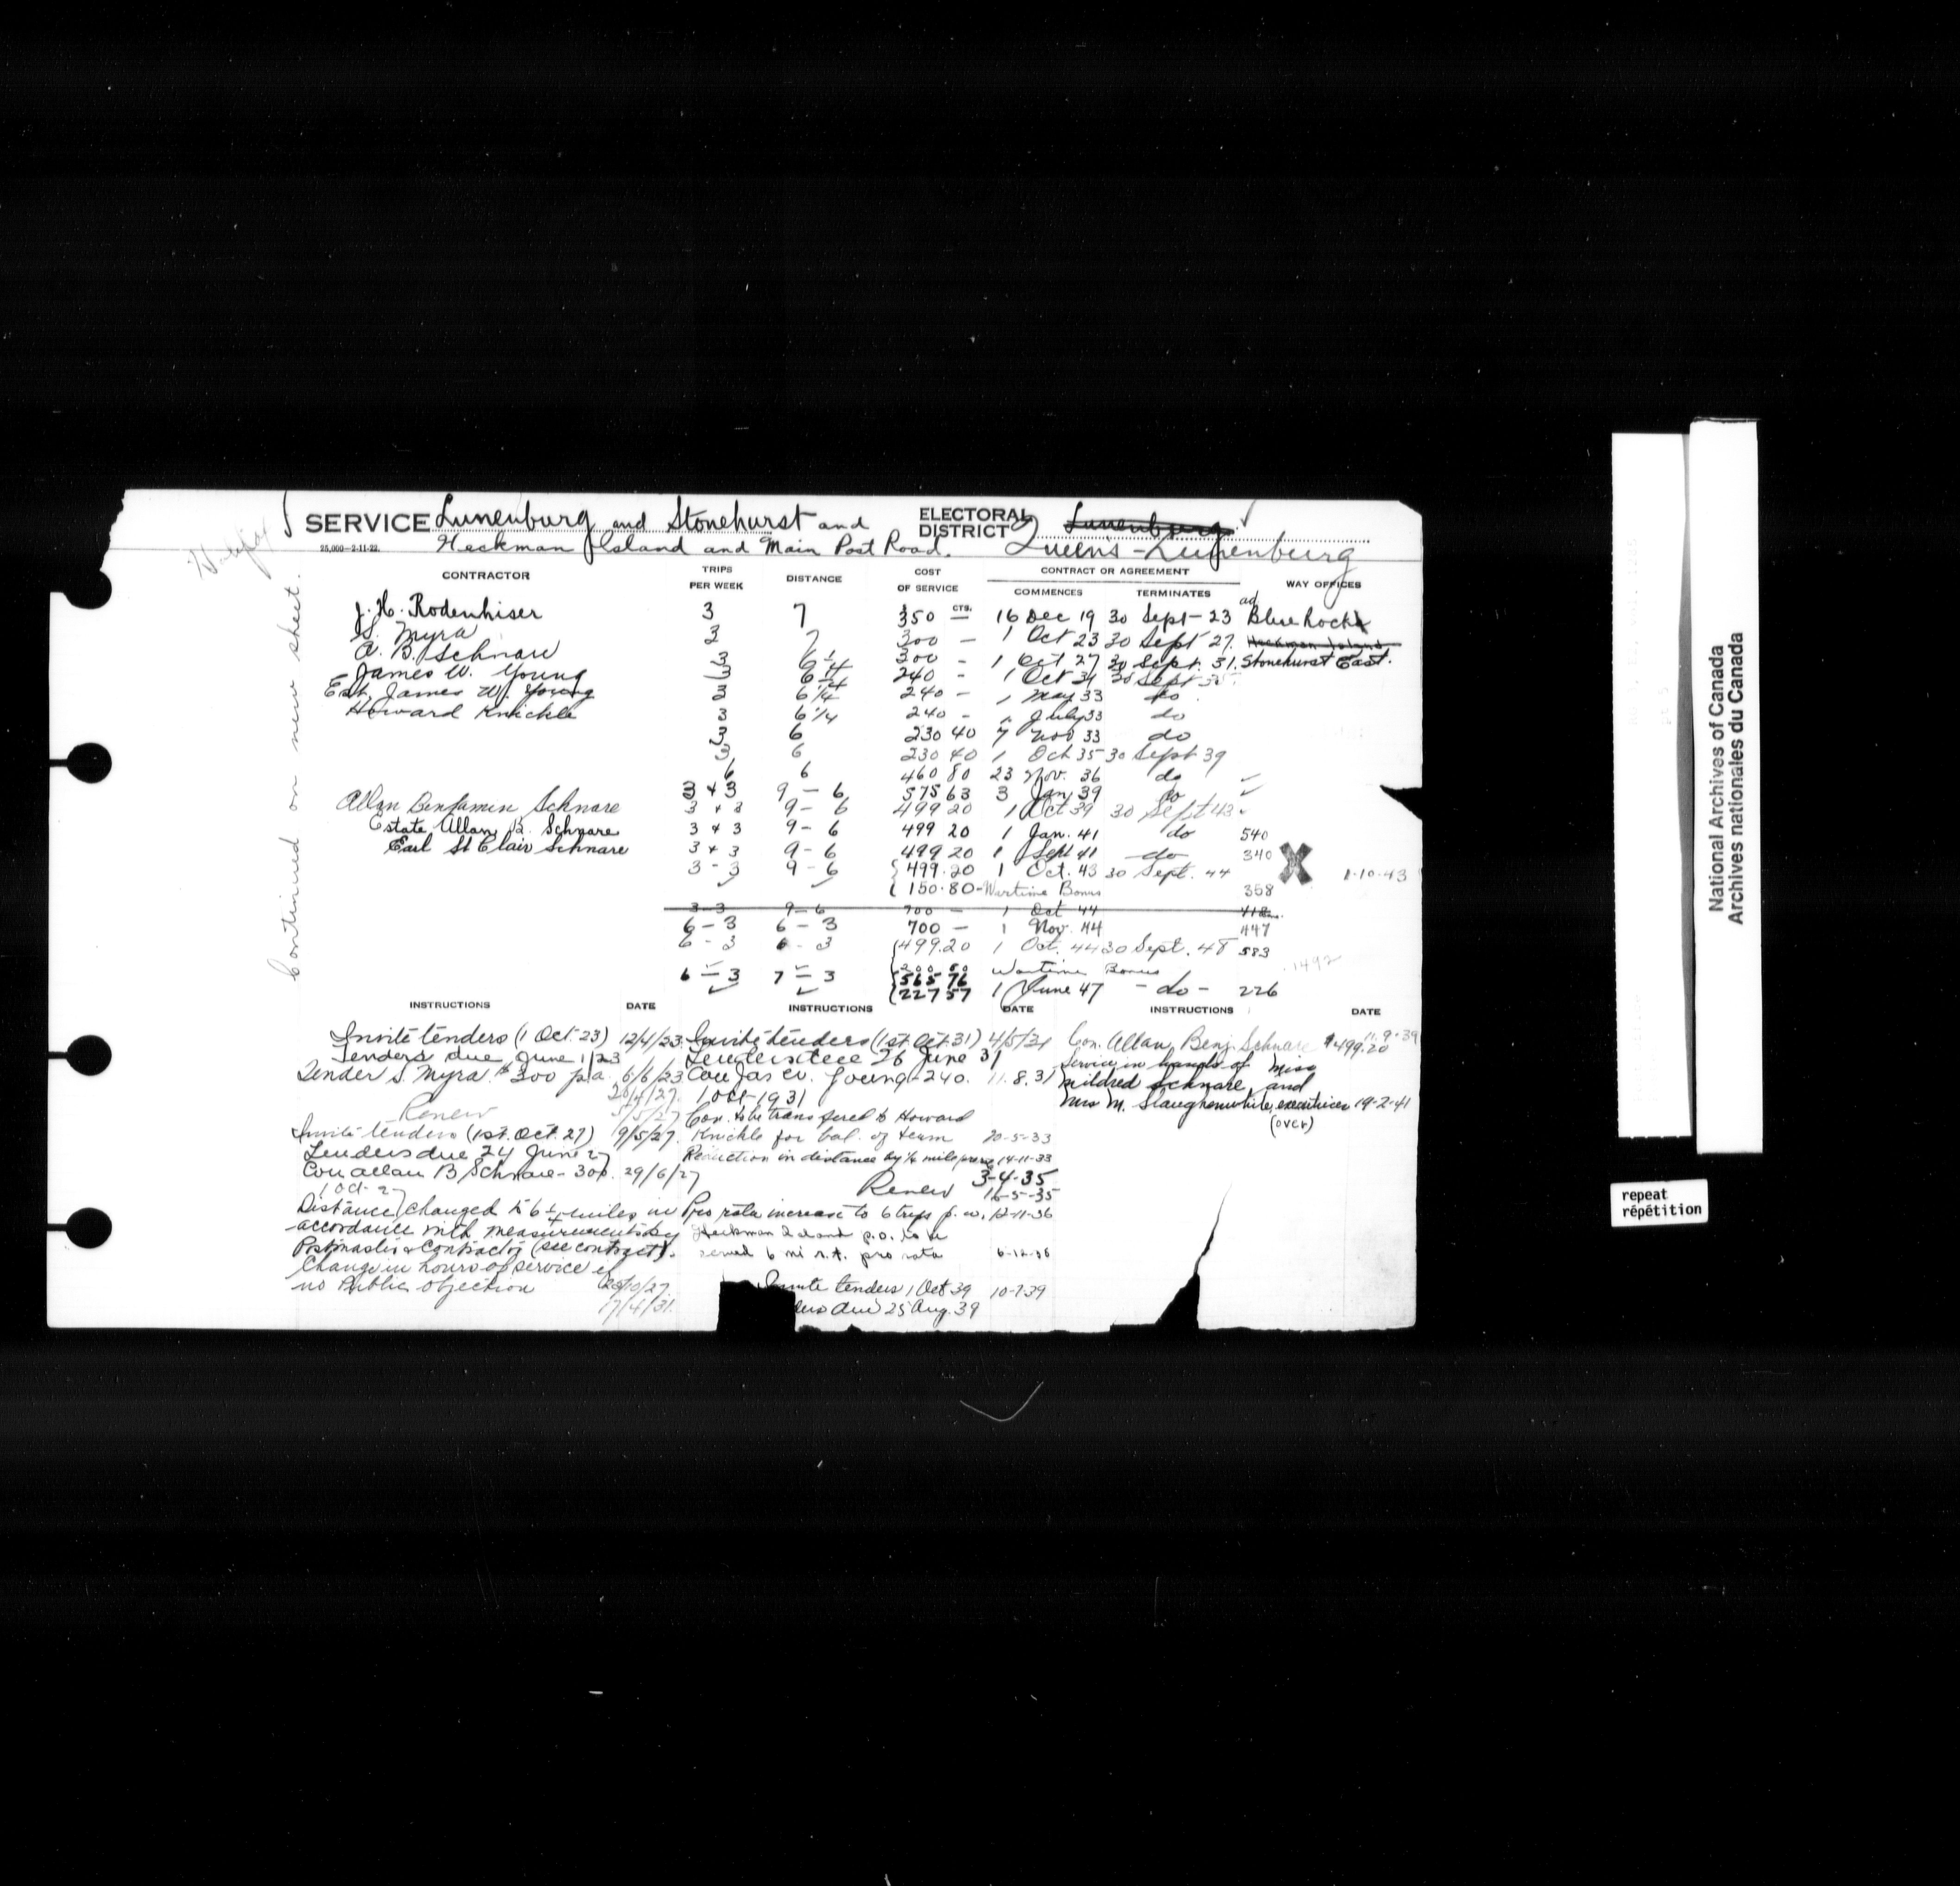 Halifax
SERVICE Lunenburg and Stonehurst and
Heckman Island and Main Post Road.
25,000-2-11-22.
ELECTORAL DISTRICT Lunenburg
Queens-Lunenburg
Continued on new sheet.
CONTRACTOR TRIPS PER WEEK DISTANCE COST OF SERVICE CONTRACT OR AGREEMENT COMMENCES TERMINATES WAY OFFICES
$ CTS.
J. H. Rodenhiser 3 7 350 — 16 Dec 19 30 Sept-23 ad Blue Rock
S. Myra 3 7 300 — 1 Oct 23 30 Sept 27. Heckman Island
A. B. Schnare 3 6 1/4 300 - 1 Oct 27 30 Sept. 31. Stonehurst East.
James W. Young 3 6 1/4 240 - 1 Oct 31 30 Sept 35
Est. James W. Young 3 6 1/4 240 - 1 May 33 do
Howard Knickle 3 6 1/4 240 - " July 33 do
3 6 230 40 7 Nov 33 do
3 6 230 40 1 Oct 35 30 Sept 39
6 6 460 80 23 Nov. 36 do
3 + 3 9 - 6 575 63 3 Jan 39 do
Allan Benjamin Schnare 3 + 3 9 - 6 499 20 1 Oct 39 30 Sept 43
Estate Allan B. Schnare 3 + 3 9 - 6 499 20 1 Jan. 41 do 540
Earl St Clair Schnare 3 + 3 9 - 6 499 20 1 Sept 41 do 340 X
3 - 3 9 - 6 499.20 1 Oct. 43 30 Sept. 44 1-10-43
150.80 - Wartime Bonus 358
3-3 9-6 700 — 1 Oct 44 418
6 - 3 6 - 3 700 — 1 Nov. 44 447
6 - 3 6 - 3 499.20 1 Oct. 44 30 Sept. 48 583
200 80 Wartime Bonus 1492
6 - 3 7 - 3 565 76
227 57 1 June 47 - do - 226
INSTRUCTIONS DATE INSTRUCTIONS DATE INSTRUCTIONS DATE
Invite tenders (1 Oct. 23) 12/4/23
Tenders due June 1/23
Tender S. Myra $300 p/a. 6/6/23
20/4/27.
Renew 5/5/27
Invite tenders (1st. Oct. 27) 9/5/27.
Tenders due 24 June 27
Con allan B Schnare - 300. 29/6/27
1 Oct - 27
Distance changed to 6 1/4 miles in
accordance with measurements by
Postmaster & Contractor (see contract).
Change in hours of service if
no Public objection 20/10/27.
17/4/31.
Invite tenders (1st. Oct. 31) 4/5/31
Tenders due 26 June 31
Con Jas W. Young - 240. 11.8.31
1 Oct - 1931
Con. to be transfered to Howard
Knickle for bal. of term 20-5-33
Reduction in distance by 1/4 mile 14-11-33
3-4-35
Renew 16-5-35
Pro rata increase to 6 trips p.w. 12-11-36
Heckman Island p.o. to be
served 6 mi r.t. pro rata
Invite tenders 1 Oct 39 10-7-39
ders due 25 Aug. 39
Con. Allan Benj. Schnare $499.20 11.9.39
Service in hands of Miss
Mildred Schnare, and
Mrs M. Slaughenwhite, executrices 19-2-41
(over)
National Archives of Canada
Archives nationales du Canada
repeat
répétition